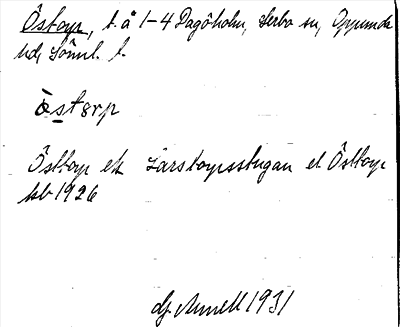 Östorp, t. å 1-4 Dagöholm, Lerbo sn, Oppunda
hd, Söml. l.
östɘrp
Östtorp el Larstorpsstugan el Östtorp
kb 1926
dj. Annell 1931